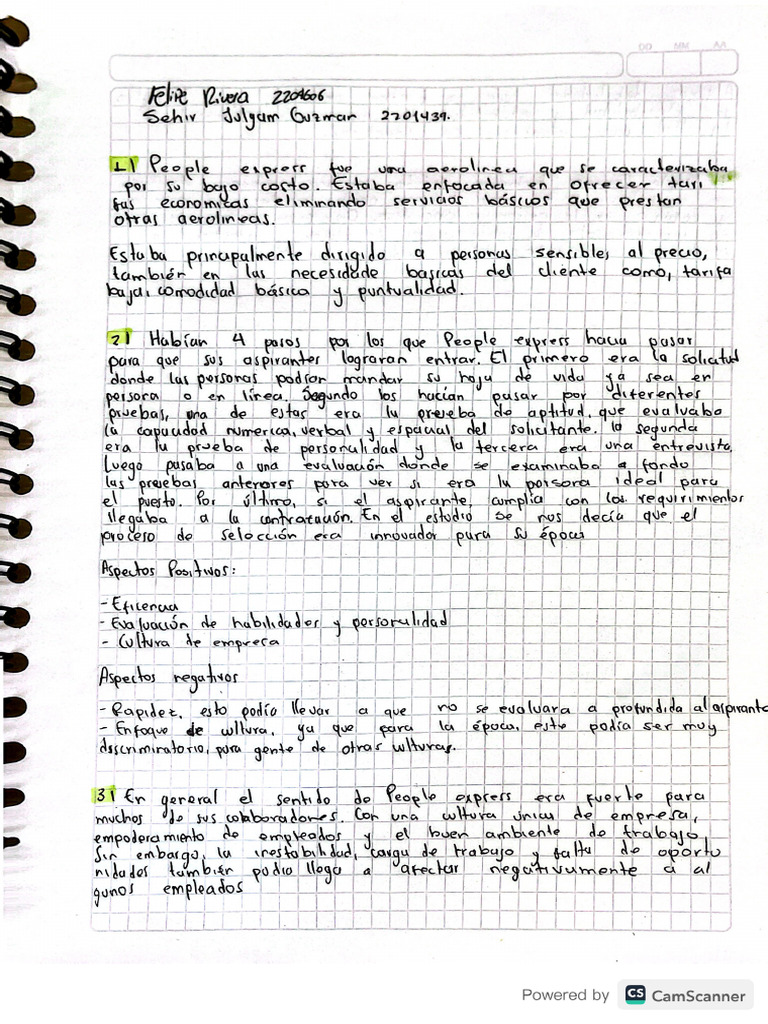 DD MM AA
Felipe Rivera 2204606
Sehir Julgam Guzman 2201439.
1| People express fue una aerolinea que se caracterizaba
por su bajo costo. Estaba enfocada en ofrecer tari
fas economicas eliminando servicios básicos que prestan
otras aerolineas.
Estaba principalmente dirigido a personas sensibles al precio,
también en las necesidade basicas del cliente como, tarifa
baja, comodidad básica y puntualidad.
2| Habían 4 pasos por los que People express hacia pasar
para que sus aspirantes lograran entrar. El primero era la solicitud
donde las personas podian mandar su hoja de vida ya sea en
persona o en línea. Segundo los hacían pasar por diferentes
pruebas, una de estas era la prueba de aptitud, que evaluaba
la capacidad numerica, verbal y espacial del solicitante. la segunda
era la prueba de personalidad y la tercera era una entrevista.
Luego pasaba a una evaluación donde se examinaba a fondo
las pruebas anteriores para ver si era la persona ideal para
el puesto. Por último, si el aspirante, cumplia con los requirimientos
llegaba a la contratación. En el estudio se nos decía que el
proceso de selección era innovador para su época
Aspectos Positivos:
- Eficencia
- Evaluación de habilidades y personalidad
- Cultura de empresa
Aspectos negativos
- Rapidez, esto podía llevar a que no se evaluara a profundida al aspirante
- Enfoque de cultura, ya que para la época, este podía ser muy
discriminatorio, para gente de otras culturas.
3| En general el sentido de People express era fuerte para
muchos de sus colaboradores. Con una cultura única de empresa,
empoderamiento de empleados y el buen ambiente de trabajo
Sin embargo, la inestabilidad, carga de trabajo y falta de oportu
nidades también podia llega a afectar negativamente a al
gunos empleados
Powered by CS CamScanner